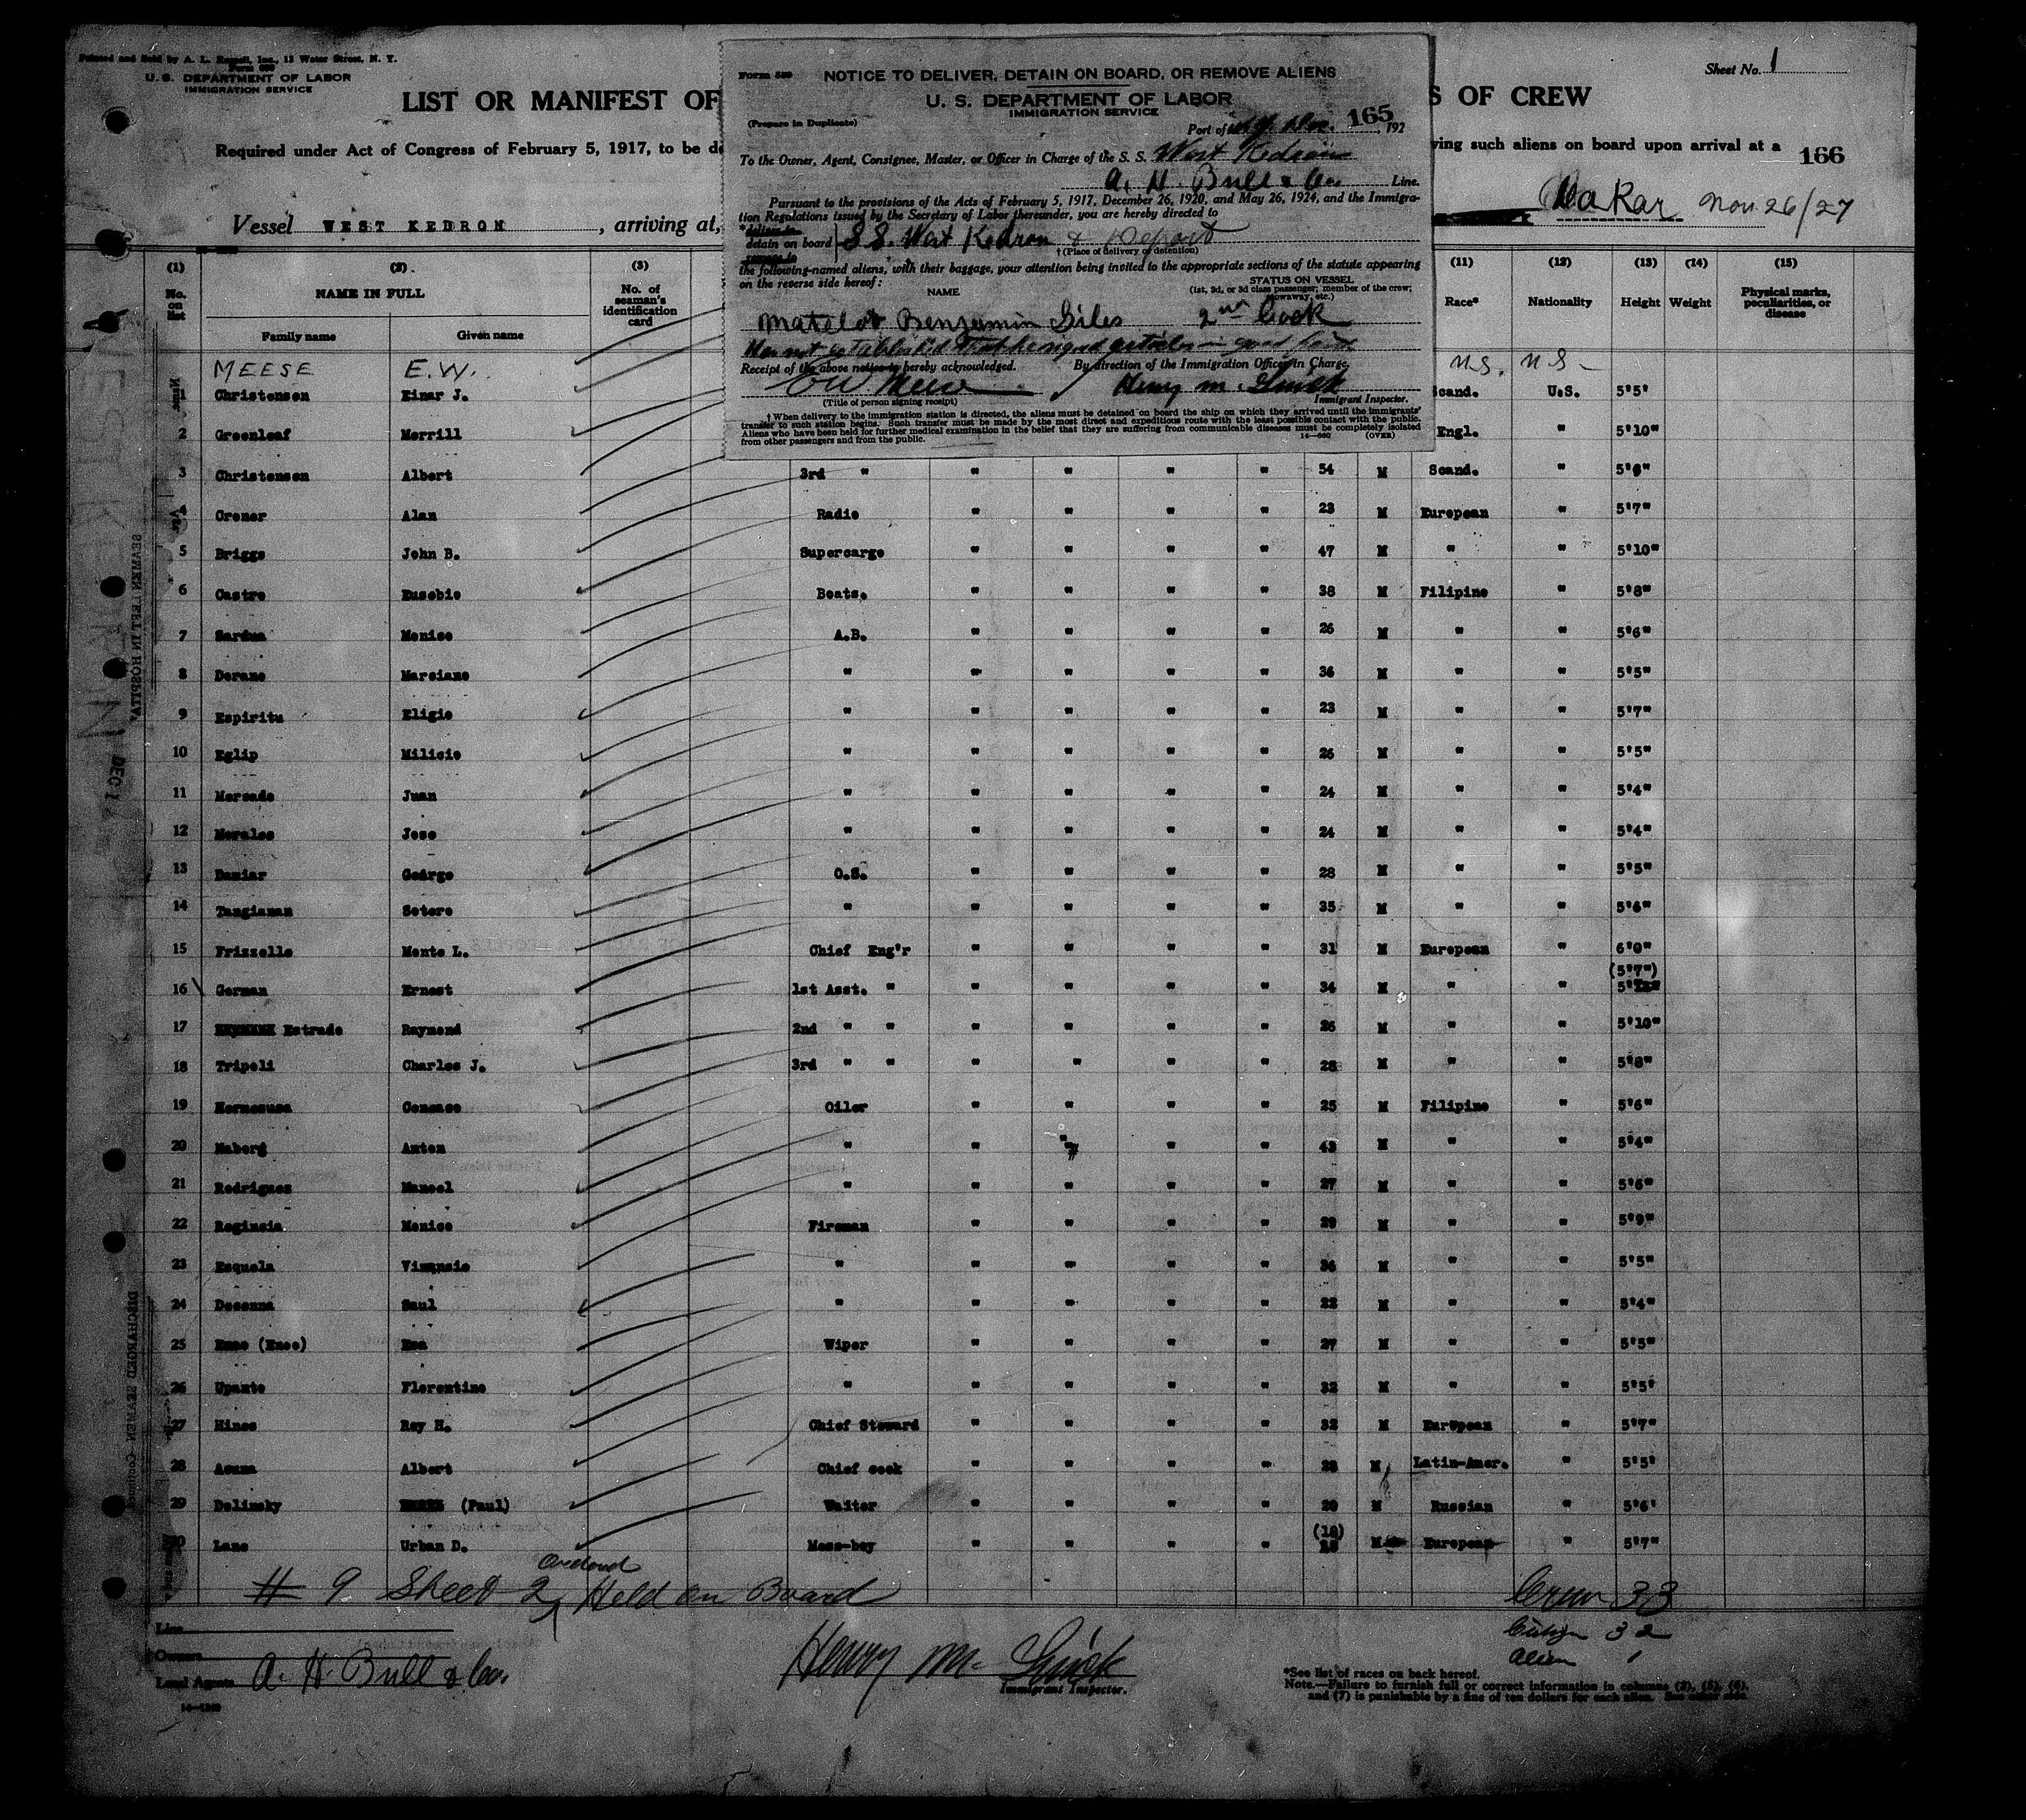 Printed and Sold by A. L. Russell, Inc., 13 Water Street, N. Y.
Form 680
U. S. DEPARTMENT OF LABOR
IMMIGRATION SERVICE
Sheet No. 1
LIST OR MANIFEST OF
S OF CREW
Required under Act of Congress of February 5, 1917, to be de
ving such aliens on board upon arrival at a
166
Vessel WEST KEDRON, arriving at,
Dakar Nov 26/27
NOTICE TO DELIVER, DETAIN ON BOARD, OR REMOVE ALIENS
U. S. DEPARTMENT OF LABOR
IMMIGRATION SERVICE
(Prepare in Duplicate)
Port of 165, 192
To the Owner, Agent, Consignee, Master, or Officer in Charge of the S. S. West Kedron
A. H. Bull & Co. Line.
Pursuant to the provisions of the Acts of February 5, 1917, December 26, 1920, and May 26, 1924, and the Immigra-
tion Regulations issued by the Secretary of Labor thereunder, you are hereby directed to
*deliver to
detain on board S.S. West Kedron & Deport
remove to
† (Place of delivery or detention)
the following-named aliens, with their baggage, your attention being invited to the appropriate sections of the statute appearing
on the reverse side hereof:
NAME
STATUS ON VESSEL
(1st, 2d, or 3d class passenger; member of the crew; stowaway, etc.)
Matelot Benjamin Giles 2nd Cook
Has not established that he signed articles in good faith
Receipt of the above notice is hereby acknowledged. By direction of the Immigration Officer in Charge,
EW Meese Henry M.
(Title of person signing receipt) Immigrant Inspector.
† When delivery to the immigration station is directed, the aliens must be detained on board the ship on which they arrived until the immigrants'
transfer to such station begins. Such transfer must be made by the most direct and expeditious route with the least possible contact with the public.
Aliens who have been held for further medical examination in the belief that they are suffering from communicable diseases must be completely isolated
from other passengers and from the public. (OVER)
(1) (2) (3) (11) (12) (13) (14) (15)
No. on list NAME IN FULL No. of seaman's identification card Race* Nationality Height Weight Physical marks, peculiarities, or disease
Family name Given name
MEESE E.W. U.S. U.S.
1 Christensen Einar J. Scand. U.S. 5'5'
2 Greenleaf Merrill Engl. " 5'10"
3 Christensen Albert 3rd " " " " " 54 M Scand. " 5'6"
4 Cremer Alan Radio " " " " 23 M European " 5'7"
5 Briggs John B. Supercargo " " " " 47 M " " 5'10"
6 Castro Eusebio Boats. " " " " 38 M Filipino " 5'8"
7 Sardua Monico A.B. " " " " 26 M " " 5'6"
8 Dorano Marciano " " " " " 36 M " " 5'5"
9 Espiritu Eligio " " " " " 23 M " " 5'7"
10 Eglip Milicio " " " " " 26 M " " 5'5"
11 Mercado Juan " " " " " 24 M " " 5'4"
12 Morales Jose " " " " " 24 M " " 5'4"
13 Damiar George O.S. " " " " 28 M " " 5'5"
14 Tangianan Sotero " " " " " 35 M " " 5'6"
15 Frizzelle Monte L. Chief Eng'r " " " " 31 M European " 6'0"
(5'7")
16 German Ernest 1st Asst. " " " " " 34 M " "
17 Estrade Raymond 2nd " " " " " " 26 M " " 5'10"
18 Tripoli Charles J. 3rd " " " " " " 28 M " " 5'8"
19 Hermosusa Oiler " " " " 25 M Filipino " 5'6"
20 Maberg Anton " " " " " 43 M " " 5'4"
21 Rodriguez Manoel " " " " " 27 M " " 5'6"
22 Reginsia Monico Fireman " " " " 29 M " " 5'9"
23 Esquela " " " " " 36 M " " 5'5"
24 Desenna Saul " " " " " 22 M " " 5'4"
25 (Enoc) Wiper " " " " 27 M " " 5'5"
26 Upanto Florentino " " " " " 32 M " " 5'5'
27 Hines Roy H. Chief Steward " " " " 32 M European " 5'7"
28 Albert Chief cook " " " " 28 M Latin-Amer. " 5'5'
29 Dolinsky (Paul) Waiter " " " " 20 M Russian " 5'6'
30 Lane Urban D. Mess-boy " " " " (18) M European " 5'7"
# 9 Sheet 2 Ordered Held on Board
Crew 33
Citizen 32
Alien 1
Line
Owners
Local Agents A. H. Bull & Co.
Henry M.
Immigrant Inspector.
*See list of races on back hereof.
Note.—Failure to furnish full or correct information in columns (2), (5), (6),
and (7) is punishable by a fine of ten dollars for each alien. See other side.